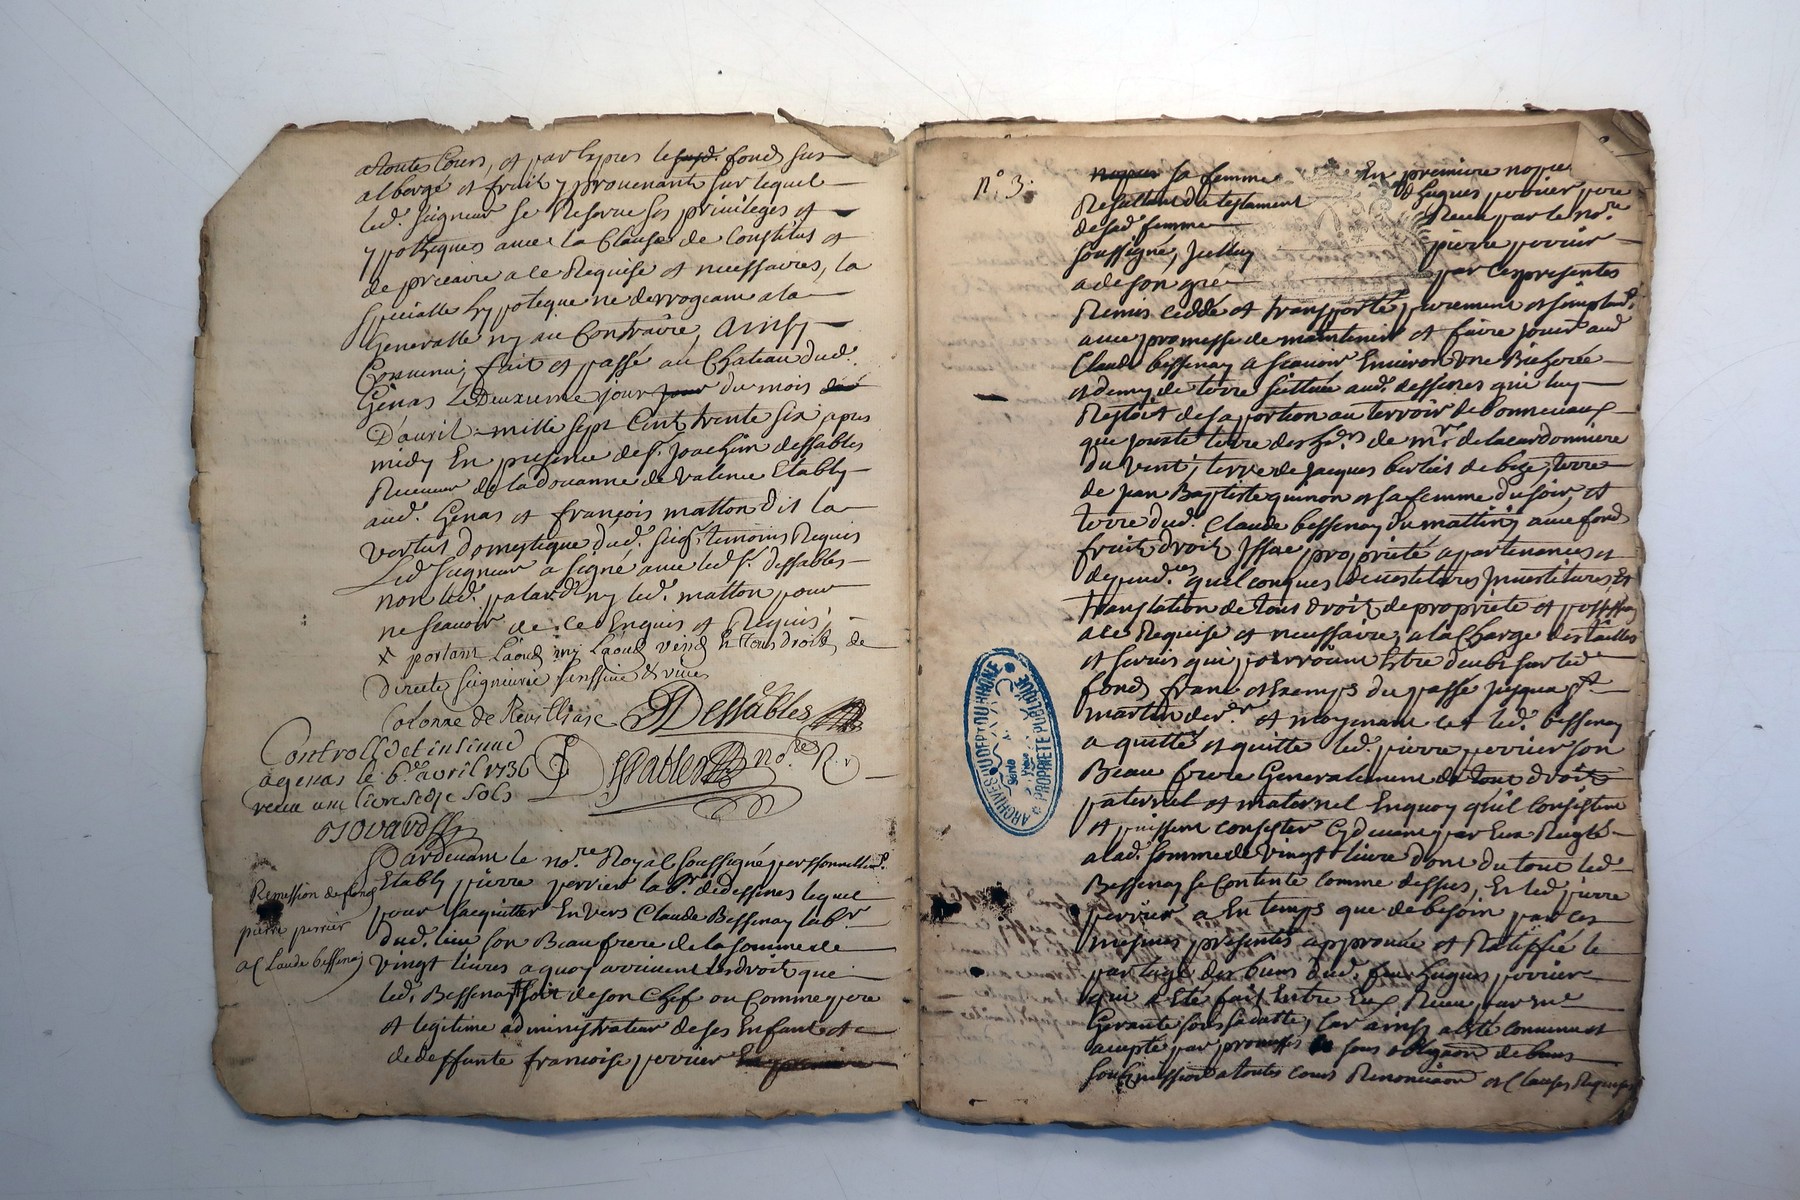 a toutes Cours, et par Expres le susd. fond sus
alberge et fruit y prouenants sur lequel
led. Seigneur se Reserue ses priuileges et
ypotheques auec la Clause de Constitus et
de precaire a ce Requise et necessaires, la
specialle hypoteque ne derrogeant a la
Generalle ny au Contraire, Ainsy
Conuenu; fait et passé au Chateau dud.
Genas Le Deuxieme jour jour du mois de
D'auril mille sept Cent trente six apres
midy En presence de sr. Joachim dessables
Receueur de la douanne de valence Estably
aud. Genas et françois matton dit la
vertus domestique dud. seigr. temoins Requis
Led. Seigneur a signé auec led. sr. dessables
non led. ny led. matton pour
ne scauoir de ce Enquis et Requis,
x portant Laods my Laods vend et tous droits de
directe Seigneurie
Colonne de
Dessables
Controllé et insinué
a genas le 6e. avril 1736
no.re R.
Pardeuant le no.re Royal soussigné personnellemt.
Remission de fond
Estably pierre perrier labr. de dessines lequel
pour sacquitter Enuers Claude Bessenay labr.
pierre perrier
dud. lieu son Beau frere de la somme de
a Claude bessenay
vingt liures a quoy arriuent les droits que
led. Bessenay soit de son Chef ou Comme pere
et legitime administrateur de ses Enfants et
de deffunte françoise perrier
n° 3.
sa femme
En premiere nopce
Resultant du testament
d'hugues perrier pere
de sad. femme
Receu par le no.re
soussigné, Jcelluy
pierre perrier
a de son gré
par ces presentes
Remis cedde et transporté purement et simplemt.
auec promesse de maintenir et faire jouir aud.
Claude bessenay a scauoir Enuiron vne Bicherée
et demy de terre scittuée aud. dessines qui luy
Restoit de sa portion au terroir de bonneuaux
que jouste terre des hers. de mr. de lacardonniere
du vent; terre de Jacques de bize, terre
de Jean Baptiste quinon et sa femme du soir, et
terre dud. Claude bessenay du mattin, auec fond
fruit droit Jssue proprieté apartenances et
dependces. quelconques deuestitures Jnuestitures et
translation de tous droits de proprieté et possession
a ce Requise et necessaire, a la Charge des tailles
et seruis qui pourroient Estre deubs sur led.
fond, franc et Exemps du passé Jusqua st.
martin der. et moyenant ce led. bessenay
a quitté et quitte led. pierre perrier son
Beau frere Generalement de tout droit
paternel et maternel Enquoy quil Consistent
et puissent consister Cy deuant par Eux Reglé
a lad. somme de vingt liure dont du tout led.
Bessenay se Contente comme dessus, Et led. pierre
perrier a En temps que de besoin par ces
mesmes presentes approuué et Ratiffié le
partage des biens dud. feu hugues perrier
qui a Eté fait Entre Eux Receu par me
Gerante sous sa datte, Car ainsy a esté conuenu et
accepté par promesses sous obligaon de biens
soubmission a toutes cours Renonciaon et Clauses Requises
ARCHIVES DU DEPt DU RHONE
PROPRIETE PUBLIQUE